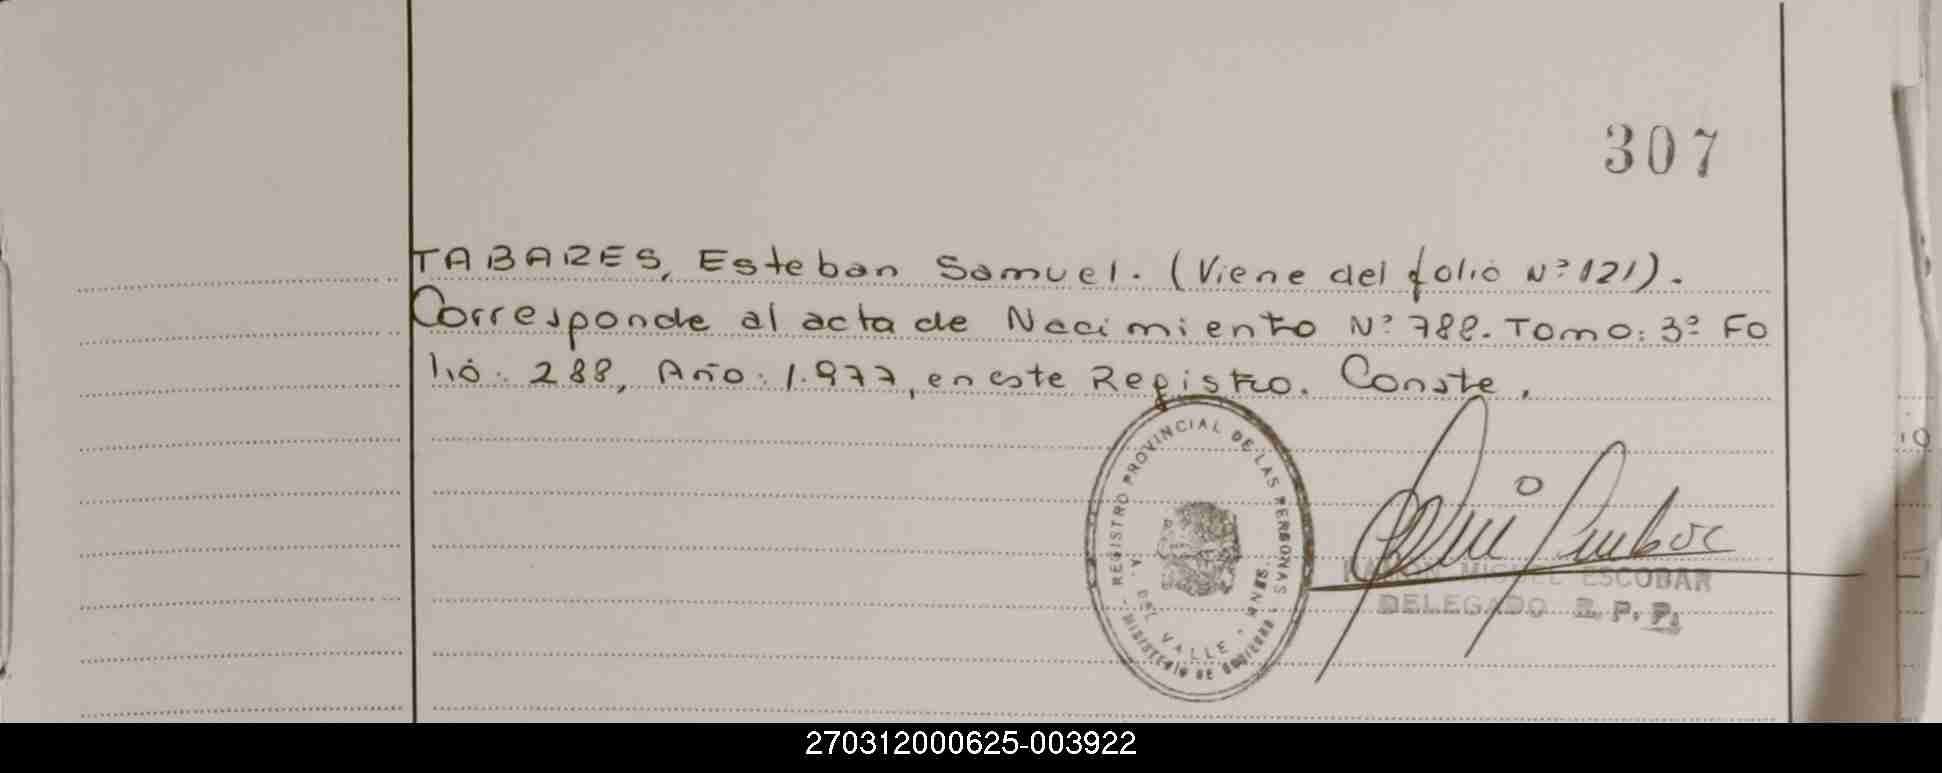 307
TABARES, Esteban Samuel. (Viene del folio Nº 121).
Corresponde al acta de Nacimiento Nº 788. Tomo: 3º Fo
lio: 288, Año: 1.977, en este Registro. Conste.
REGISTRO PROVINCIAL DE LAS PERSONAS
MINISTERIO DE GOBIERNO
A. DEL VALLE
RAMON MIGUEL ESCOBAR
DELEGADO R. P. P.
270312000625-003922